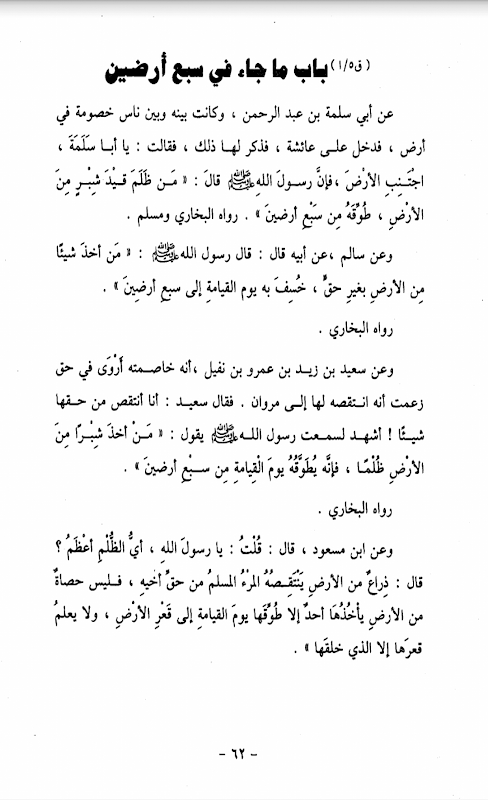 (ق١/٥) باب ما جاء في سبع أرضين
عن أبي سلمة بن عبد الرحمن ، وكانت بينه وبين ناس خصومة في
أرض ، فدخل على عائشة ، فذكر لها ذلك ، فقالت : يا أبا سَلَمَةَ ،
اجتَنِبِ الأرْضَ ،فإنَّ رسولَ اللهِ ﷺ قالَ : « مَن ظَلَمَ قِيْدَ شِبْرٍ مِنَ
الأرْضِ ، طُوِّقَهُ مِن سَبْعِ أرضينَ » . رواه البخاري ومسلم .
وعن سالم ،عن أبيه قال : قال رسول الله ﷺ : « مَن أخذَ شيئًا
مِن الأرضِ بغيرِ حقٍّ ، خُسِفَ به يوم القيامةِ إلى سبعِ أرضِينَ » .
رواه البخاري .
وعن سعيد بن زيد بن عمرو بن نفيل ،أنه خاصمته أَرْوَى في حق
زعمت أنه انتقصه لها إلى مروان . فقال سعيد : أنا أنتقص من حقها
شيئًا ! أشهد لسمعت رسول الله ﷺ يقول : « مَنْ أخذَ شِبْرًا مِنَ
الأرْضِ ظُلْمًا ، فإنَّه يُطَوَّقُهُ يومَ الْقِيامةِ مِن سَبْعِ أرضينَ » .
رواه البخاري .
وعن ابن مسعود ، قال : قُلْتُ : يا رسولَ اللهِ ، أيُّ الظُّلْمِ أعْظَمُ ؟
قال : ذِراعٌ من الأرضِ يَنْتَقِصُهُ المرْءُ المسلمُ من حقِّ أخيهِ ، فليس حصاةٌ
من الأرضِ يأخُذُهَا أحدٌ إلا طُوِّقَها يومَ القيامةِ إلى قَعْرِ الأرْضِ ، ولا يعلمُ
قعرَها إلا الذي خلقَها » .
- ٦٢ -